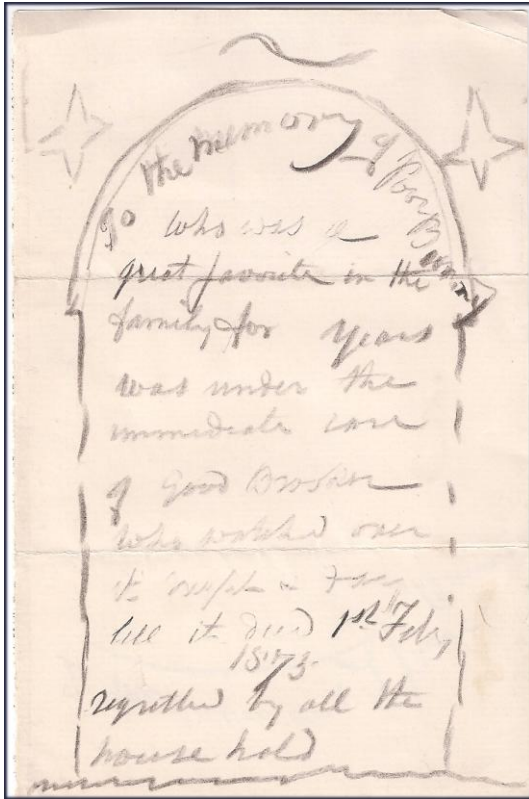 To the Memory of Poor Bunny
who was a
great favorite in the
family for years
was under the
immediate care
of Good Brother
who watched over
it night & Day
till it died 1st Feby
1873
regretted by all the
house hold